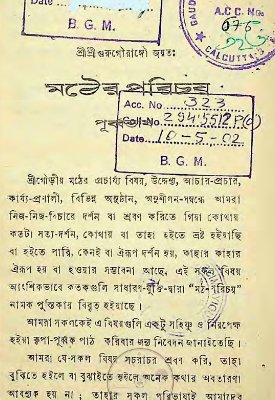 Date
B. G. M.
GAUD
A.C.C. No.
CALCUTTA-3
শ্রীশ্রীগুরুগৌরাঙ্গৌ জয়তঃ
মঠের পরিচয়
Acc. No 323
Date 10-5-02
B. G. M.
শ্রীগৌড়ীয় মঠের প্রচার্য্য বিষয়, উদ্দেশ্য, আচার-প্রচার,
কার্য্য-প্রণালী, বিভিন্ন অনুষ্ঠান, অনুশীলন-সম্বন্ধে আমরা
নিজ-নিজ-বিচারে দর্শন বা শ্রবণ করিতে গিয়া কোথায়
কতটা সত্য-দর্শন, কোথায় বা তাহা হইতে ভ্রষ্ট হইয়াছি
বা হইতে পারি, কেনই বা ঐরূপ দর্শন হয়, কাহার কাহার
ঐরূপ হয় বা হওয়ার সম্ভাবনা আছে, এই সকল বিষয়
আংশিকভাবে কতকগুলি সাধারণ-যুক্তি-দ্বারা “মঠ-পরিচয়”
নামক পুস্তিকায় বিবৃত হইয়াছে।
আমরা সকলকেই এ বিষয়গুলি একটু সহিষ্ণু ও নিরপেক্ষ
হইয়া কৃপা-পূর্ব্বক পাঠ করিবার জন্য নিবেদন জানাইতেছি।
আমরা যে-সকল বিষয় সচরাচর শ্রবণ করি, তাহা
বুঝিতে হইলে বা বুঝাইতে হইলে অনেক কথার অবতারণা
আবশ্যক হয় না; তাহার সকল পরিভাষাই আমাদের